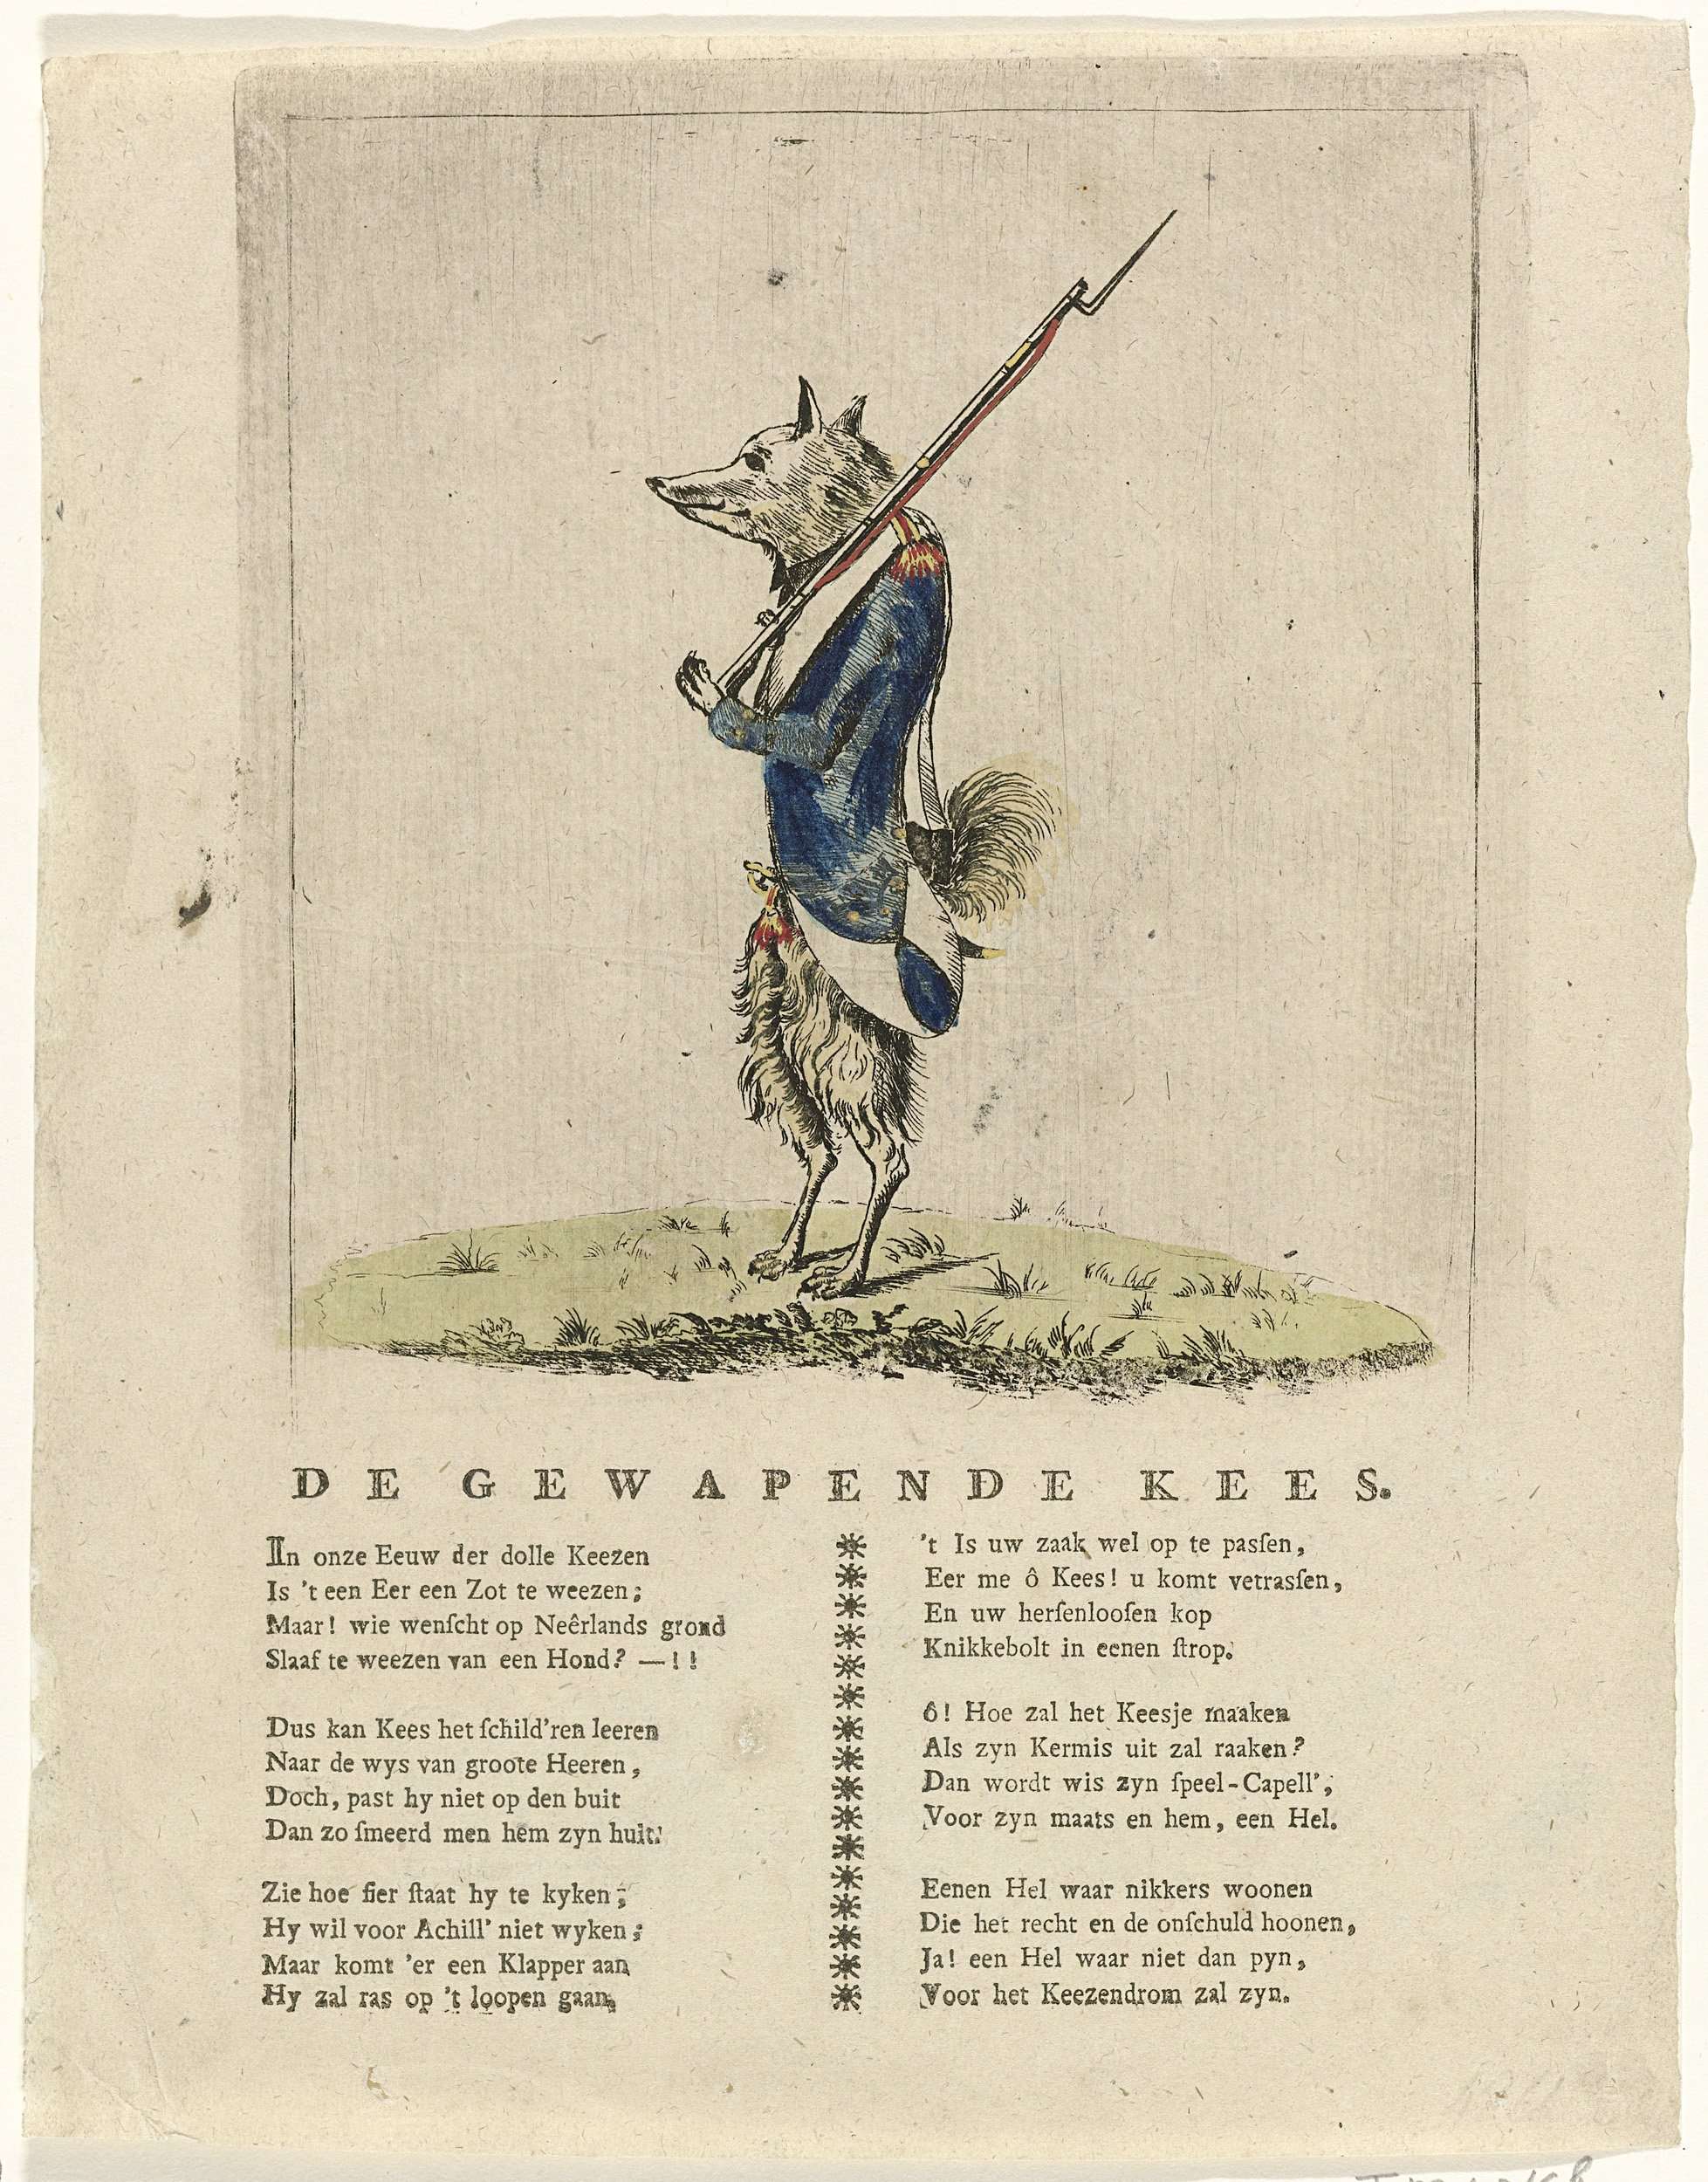 DE GEWAPENDE KEES.
In onze Eeuw der dolle Keezen
Is 't een Eer een Zot te weezen;
Maar! wie wenſcht op Neêrlands grond
Slaaf te weezen van een Hond? —!!
Dus kan Kees het ſchild'ren leeren
Naar de wys van groote Heeren,
Doch, past hy niet op den buit
Dan zo ſmeerd men hem zyn huit!
Zie hoe fier ſtaat hy te kyken;
Hy wil voor Achill' niet wyken;
Maar komt 'er een Klapper aan
Hy zal ras op 't loopen gaan.
't Is uw zaak wel op te pasſen,
Eer me ô Kees! u komt vetrasſen,
En uw herſenlooſen kop
Knikkebolt in eenen ſtrop.
ô! Hoe zal het Keesje maaken
Als zyn Kermis uit zal raaken?
Dan wordt wis zyn ſpeel-Capell',
Voor zyn maats en hem, een Hel.
Eenen Hel waar nikkers woonen
Die het recht en de onſchuld hoonen,
Ja! een Hel waar niet dan pyn,
Voor het Keezendrom zal zyn.